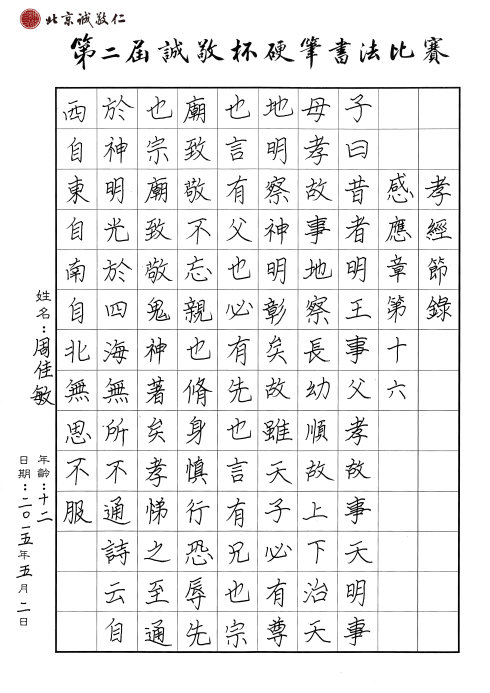 北京誠敬仁
第二屆誠敬杯硬筆書法比賽
孝經節錄
感應章第十六
子曰昔者明王事父孝故事天明事
母孝故事地察長幼順故上下治天
地明察神明彰矣故雖天子必有尊
也言有父也必有先也言有兄也宗
廟致敬不忘親也脩身慎行恐辱先
也宗廟致敬鬼神著矣孝悌之至通
於神明光於四海無所不通詩云自
西自東自南自北無思不服
姓名：周佳敏
年齡：十二
日期：二〇一五年五月二日